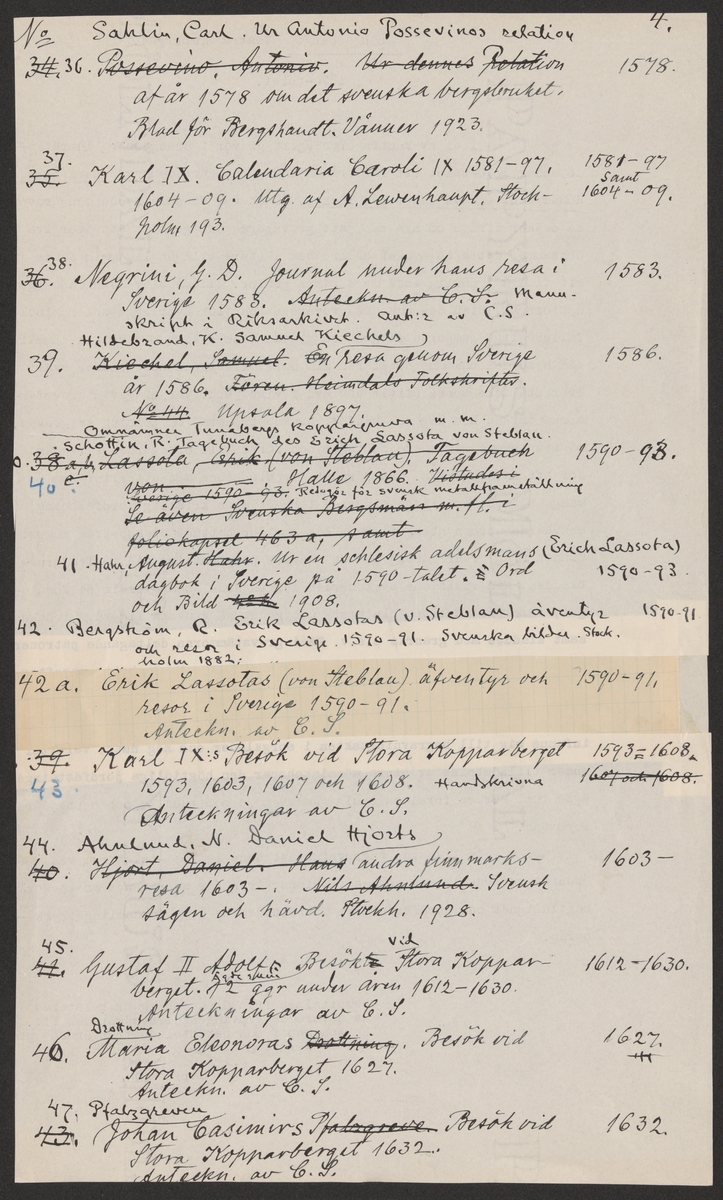 No Sahlin, Carl. Ur Antonio Possevinos relation 4.
34. 36. Possevino, Antonio. Ur dennes Relation 1578.
af år 1578 om det svenska bergsbruket.
Blad för Bergshandt. Vänner 1923.
37.
35. Karl IX. Calendaria Caroli IX 1581-97, 1581-97
samt
1604-09. Utg. af A. Lewenhaupt. Stock- 1604-09.
holm 193.
36. 38. Negrini, G. D. Journal under hans resa i 1583.
Sverige 1583. Anteckn. av C. S. Manu-
skript i Riksarkivet. Ant:r av C.S.
Hildebrand, K. Samuel Kiechels
39. Kiechel, Samuel. En resa genom Sverige 1586.
år 1586. Fören. Heimdals Folkskrifter.
No 44. Upsala 1897.
Omnämner Tunabergs koppargruva m. m.
Schottin, R. Tagebuch des Erich Lassota von Steblau.
38 a, b, Lassota, Erik (von Steblau), Tagebuch 1590-93.
40. von Halle 1866. Vistades i
Sverige 1590-93. Redogör för svensk metallframställning
Se även Svenska Bergsmän m. fl. i
foliokapsel 463 a, samt
41. Hahr, August. Hahr. Ur en schlesisk adelsmans (Erich Lassota)
dagbok i Sverige på 1590-talet. Ord 1590-93.
och Bild 1908.
42. Bergström, R. Erik Lassotas (v. Steblau) äventyr 1590-91
och resor i Sverige 1590-91. Svenska bilder. Stock-
holm 1882.
42 a. Erik Lassotas (von Steblau) äfventyr och 1590-91.
resor i Sverige 1590-91.
Anteckn. av C. S.
39. Karl IX:s Besök vid Stora Kopparberget 1593-1608.
43 1593, 1603, 1607 och 1608. Handskrivna 1607 och 1608.
Anteckningar av C. S.
44. Ahnlund, N. Daniel Hjorts
40. Hjort, Daniel. Hans andra finnmarks- 1603-
resa 1603-. Nils Ahnlund. Svensk
sägen och hävd. Stockh. 1928.
45. vid
41. Gustaf II Adolfs Besök Stora Koppar- 1612-1630.
berget. 12 ggr under åren 1612-1630.
Anteckningar av C. S.
Drottning
46. Maria Eleonoras Drottning. Besök vid 1627.
Stora Kopparberget 1627.
Anteckn. av C. S.
47. Pfalzgreven
43. Johan Casimirs Pfalzgreve. Besök vid 1632.
Stora Kopparberget 1632.
Anteckn. av C. S.